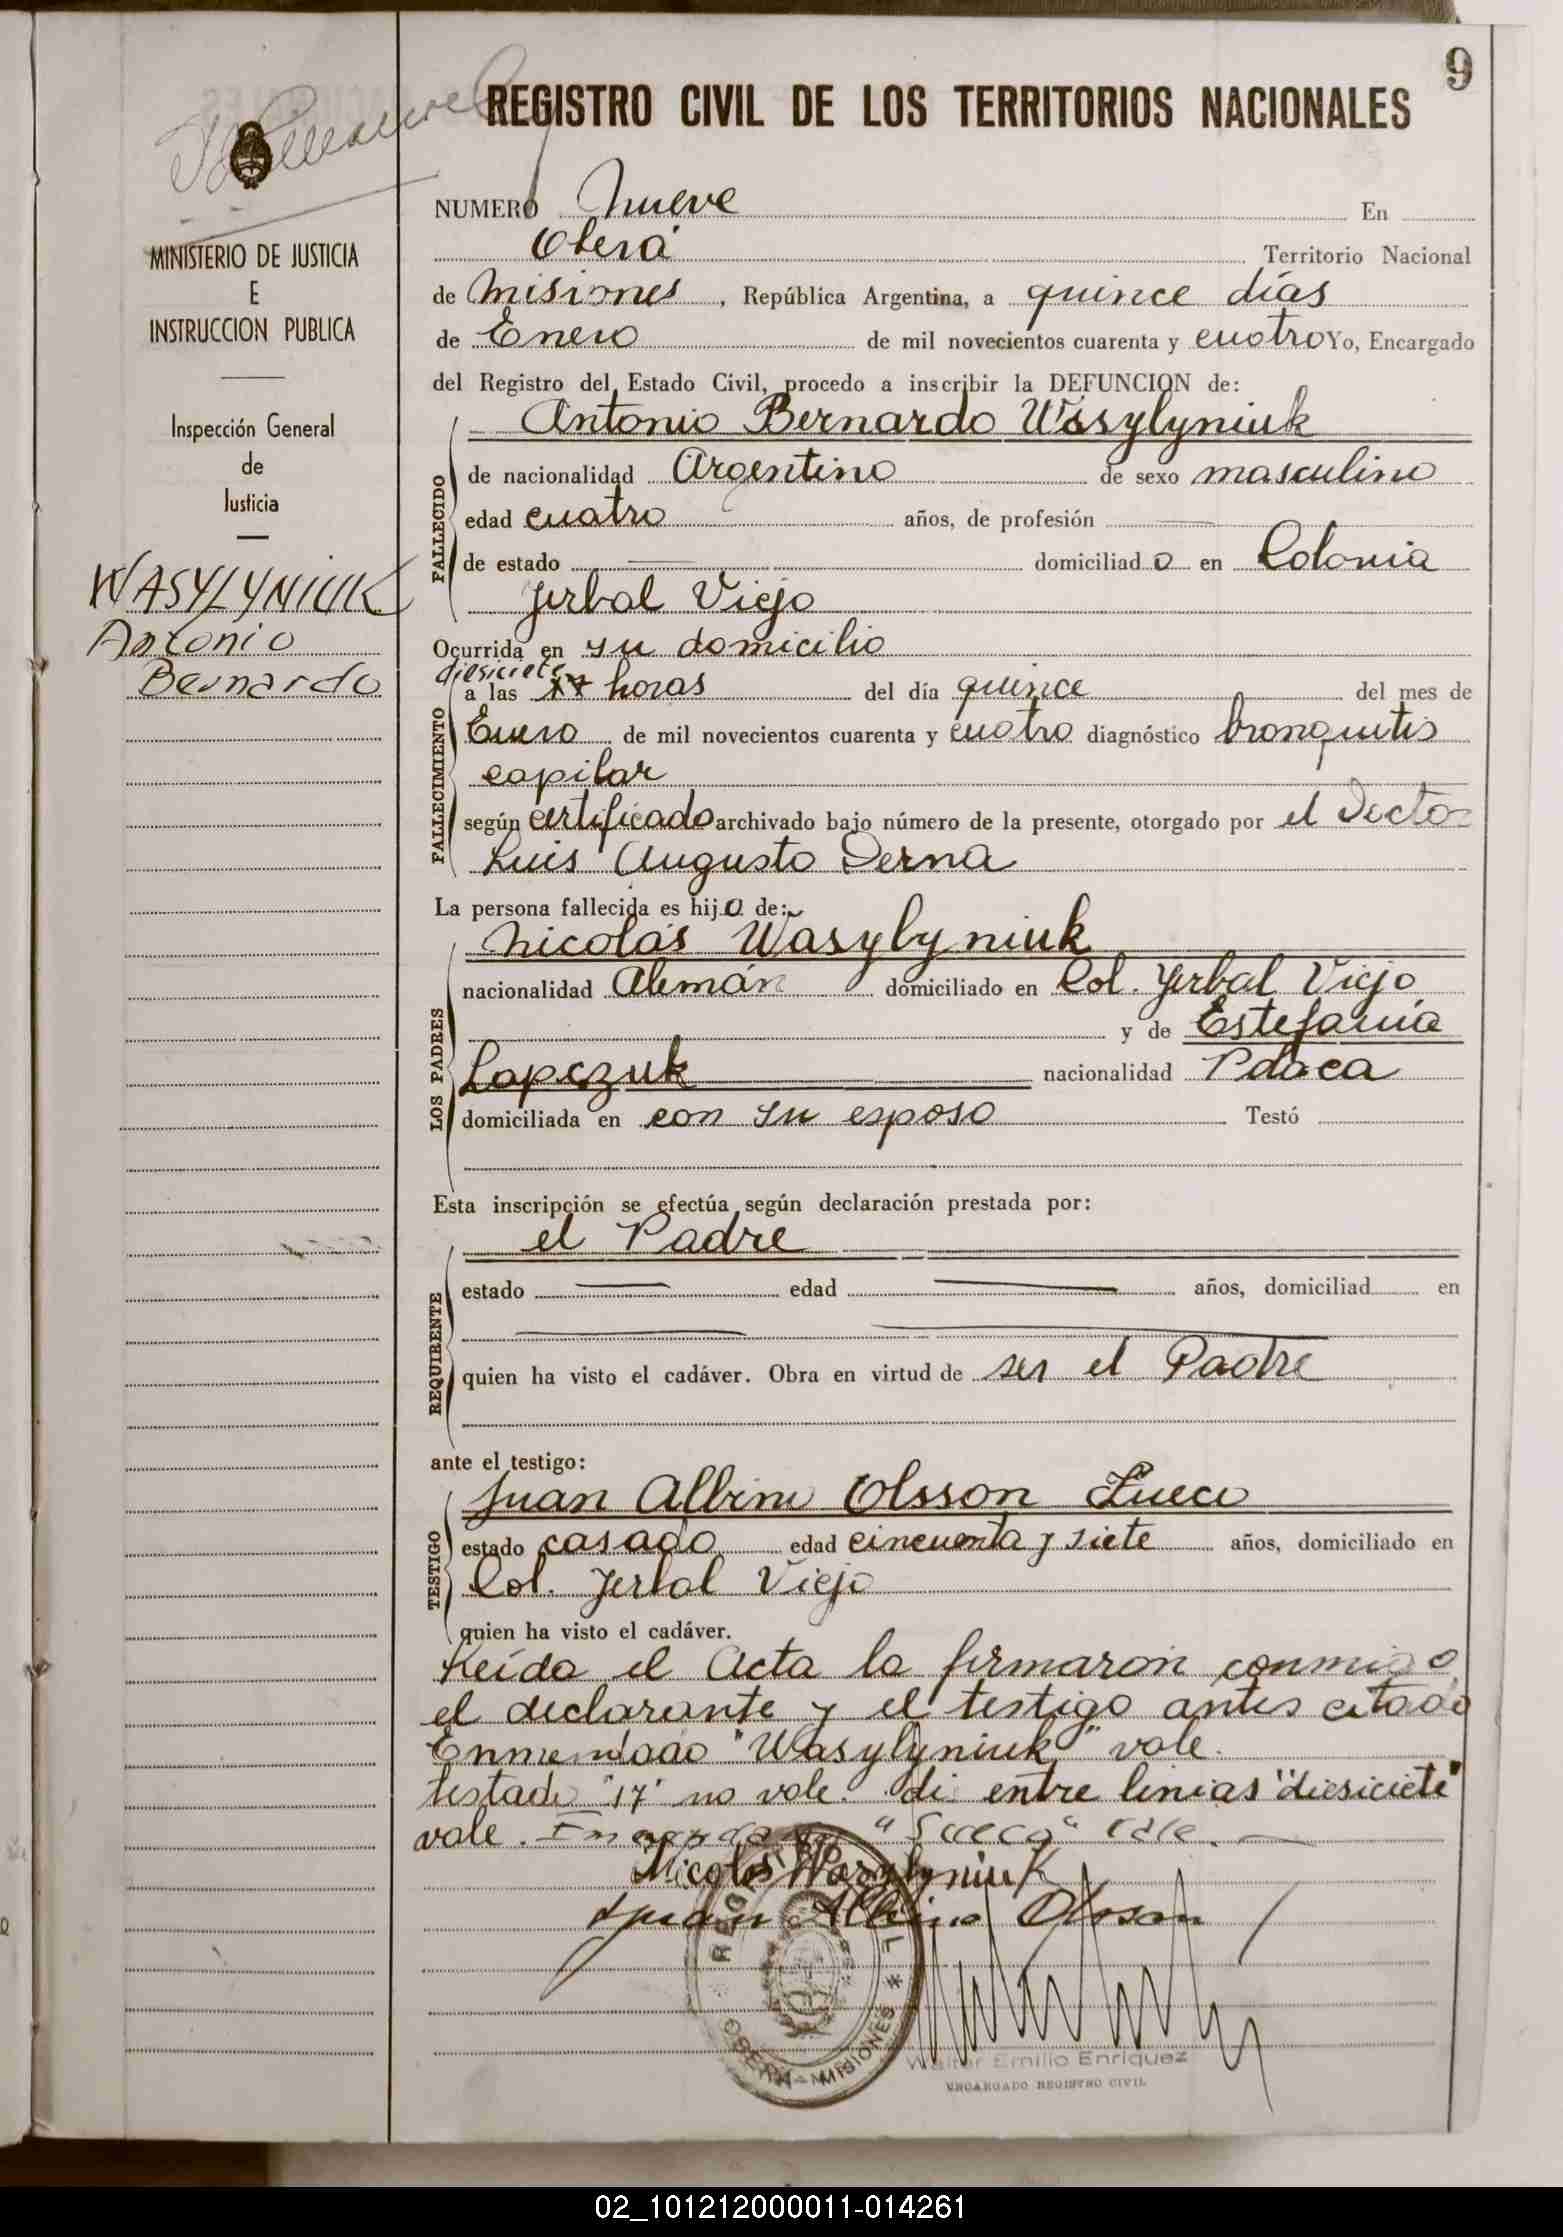 9
REGISTRO CIVIL DE LOS TERRITORIOS NACIONALES
MINISTERIO DE JUSTICIA
E
INSTRUCCION PUBLICA
Inspección General
de
Justicia
WASYLYNIUK
Antonio
Bernardo
NUMERO Nueve En
Oberá Territorio Nacional
de Misiones, República Argentina, a quince días
de Enero de mil novecientos cuarenta y cuatro Yo, Encargado
del Registro del Estado Civil, procedo a inscribir la DEFUNCION de:
Antonio Bernardo Wasylyniuk
FALLECIDO
de nacionalidad Argentino de sexo masculino
edad cuatro años, de profesión
de estado domiciliado en Colonia
Yerbal Viejo
Ocurrida en su domicilio
diesiciete
FALLECIMIENTO
a las 17 horas del día quince del mes de
Enero de mil novecientos cuarenta y cuatro diagnóstico bronquitis
capilar
según certificado archivado bajo número de la presente, otorgado por el Doctor
Luis Augusto Derna
La persona fallecida es hijo de:
Nicolás Wasylyniuk
LOS PADRES
nacionalidad Alemán domiciliado en Col. Yerbal Viejo
y de Estefanía
Lopczuk nacionalidad Polaca
domiciliada en con su esposo Testó
Esta inscripción se efectúa según declaración prestada por:
el Padre
REQUIRENTE
estado edad años, domiciliad en
quien ha visto el cadáver. Obra en virtud de ser el Padre
ante el testigo:
Juan Albino Olsson Sueco
TESTIGO
estado casado edad cincuenta y siete años, domiciliado en
Col. Yerbal Viejo
quien ha visto el cadáver.
Leída el Acta la firmaron conmigo
el declarante y el testigo antes citado
Enmendado "Wasylyniuk" vale.
testado "17" no vale. di entre linias "diesiciete"
vale. Enmendado "Sueco" vale.
Nicolas Wasylyniuk
Juan Albino Olsson
OBERA - MISIONES
Walter Emilio Enriquez
ENCARGADO REGISTRO CIVIL
02_101212000011-014261